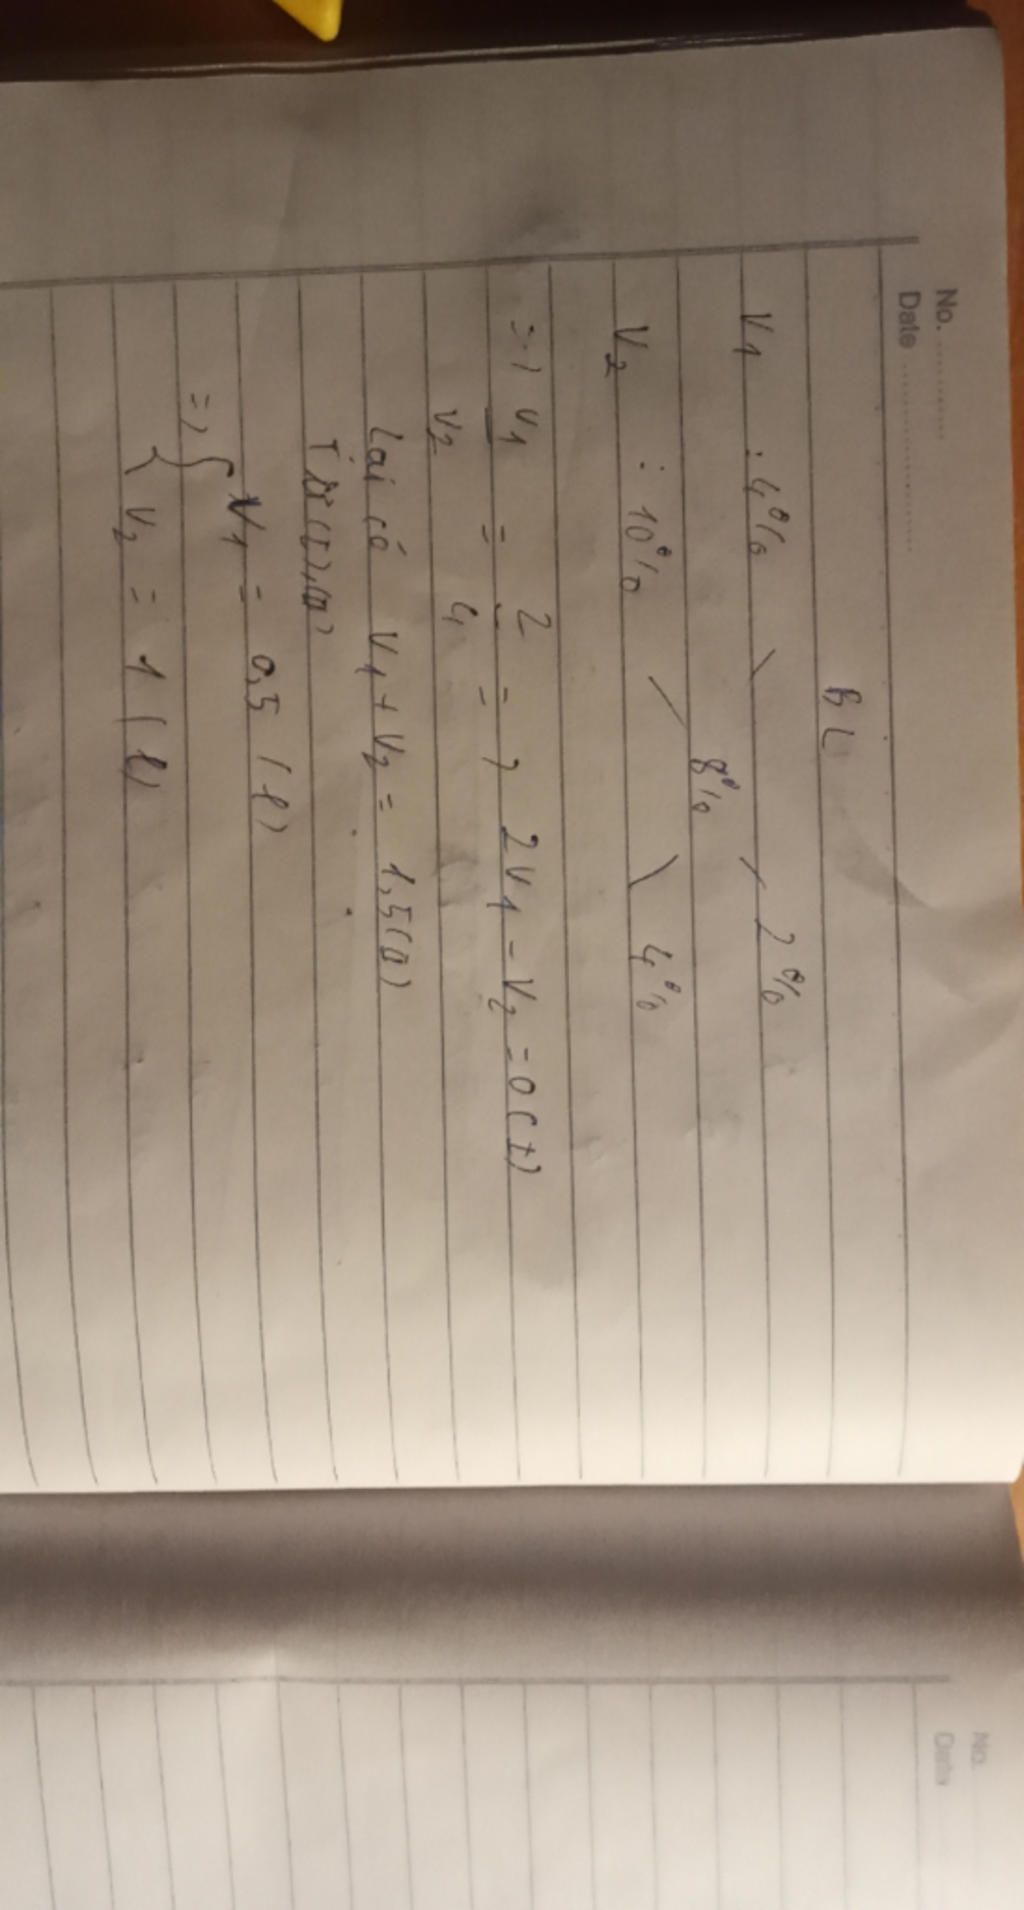 No. ............
Date ........................
BL
V1 : 4% \ / 2%
8%
V2 : 10% / \ 4%
=> V1 = 2 => 2V1 - V2 = 0 (I)
V2 4
Lại có V1 + V2 = 1,5 (II)
Từ (I), (II)
=> { V1 = 0,5 (l)
V2 = 1 (l)
No.
Date